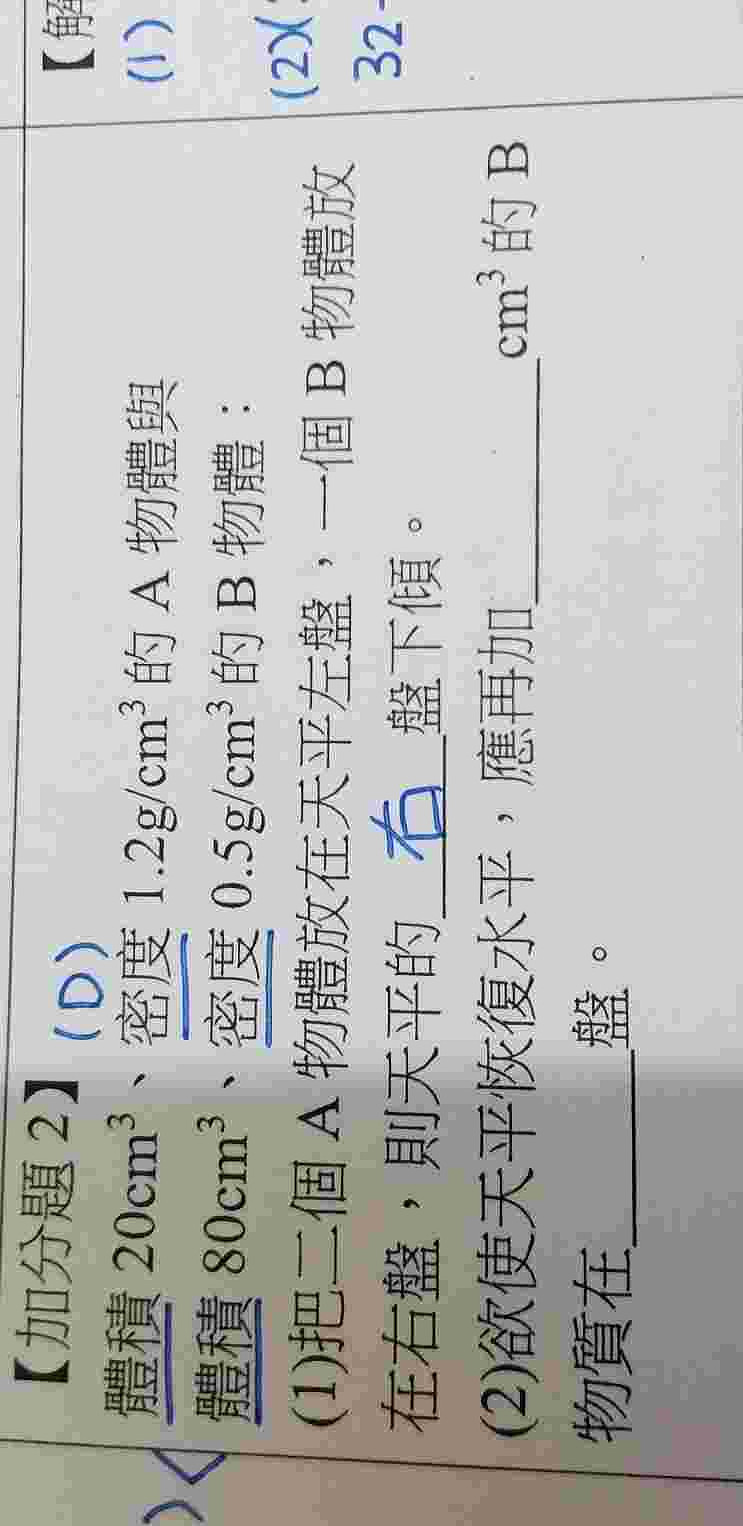 【加分題 2】 (D)
體積 20cm³、密度 1.2g/cm³ 的 A 物體與
體積 80cm³、密度 0.5g/cm³ 的 B 物體：
(1)把二個 A 物體放在天平左盤，一個 B 物體放
在右盤，則天平的 右 盤下傾。
(2)欲使天平恢復水平，應再加______cm³ 的 B
物質在______盤。
【解
(1)
(2)
32-